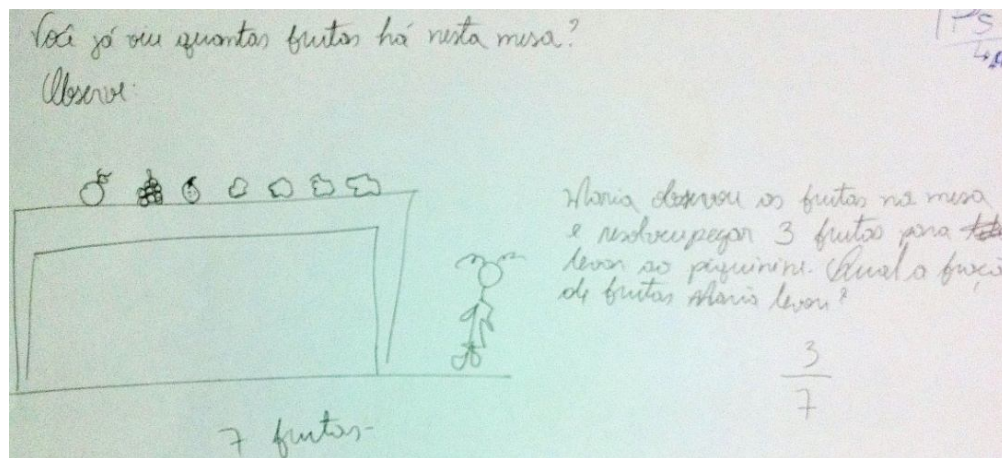 Você já viu quantas frutas há nesta mesa?
Observe:
Maria observou as frutas na mesa
e resolveu pegar 3 frutas para
levar ao piquinine. Qual a fraçã
de frutas Maria levou?
3
7
7 frutas-